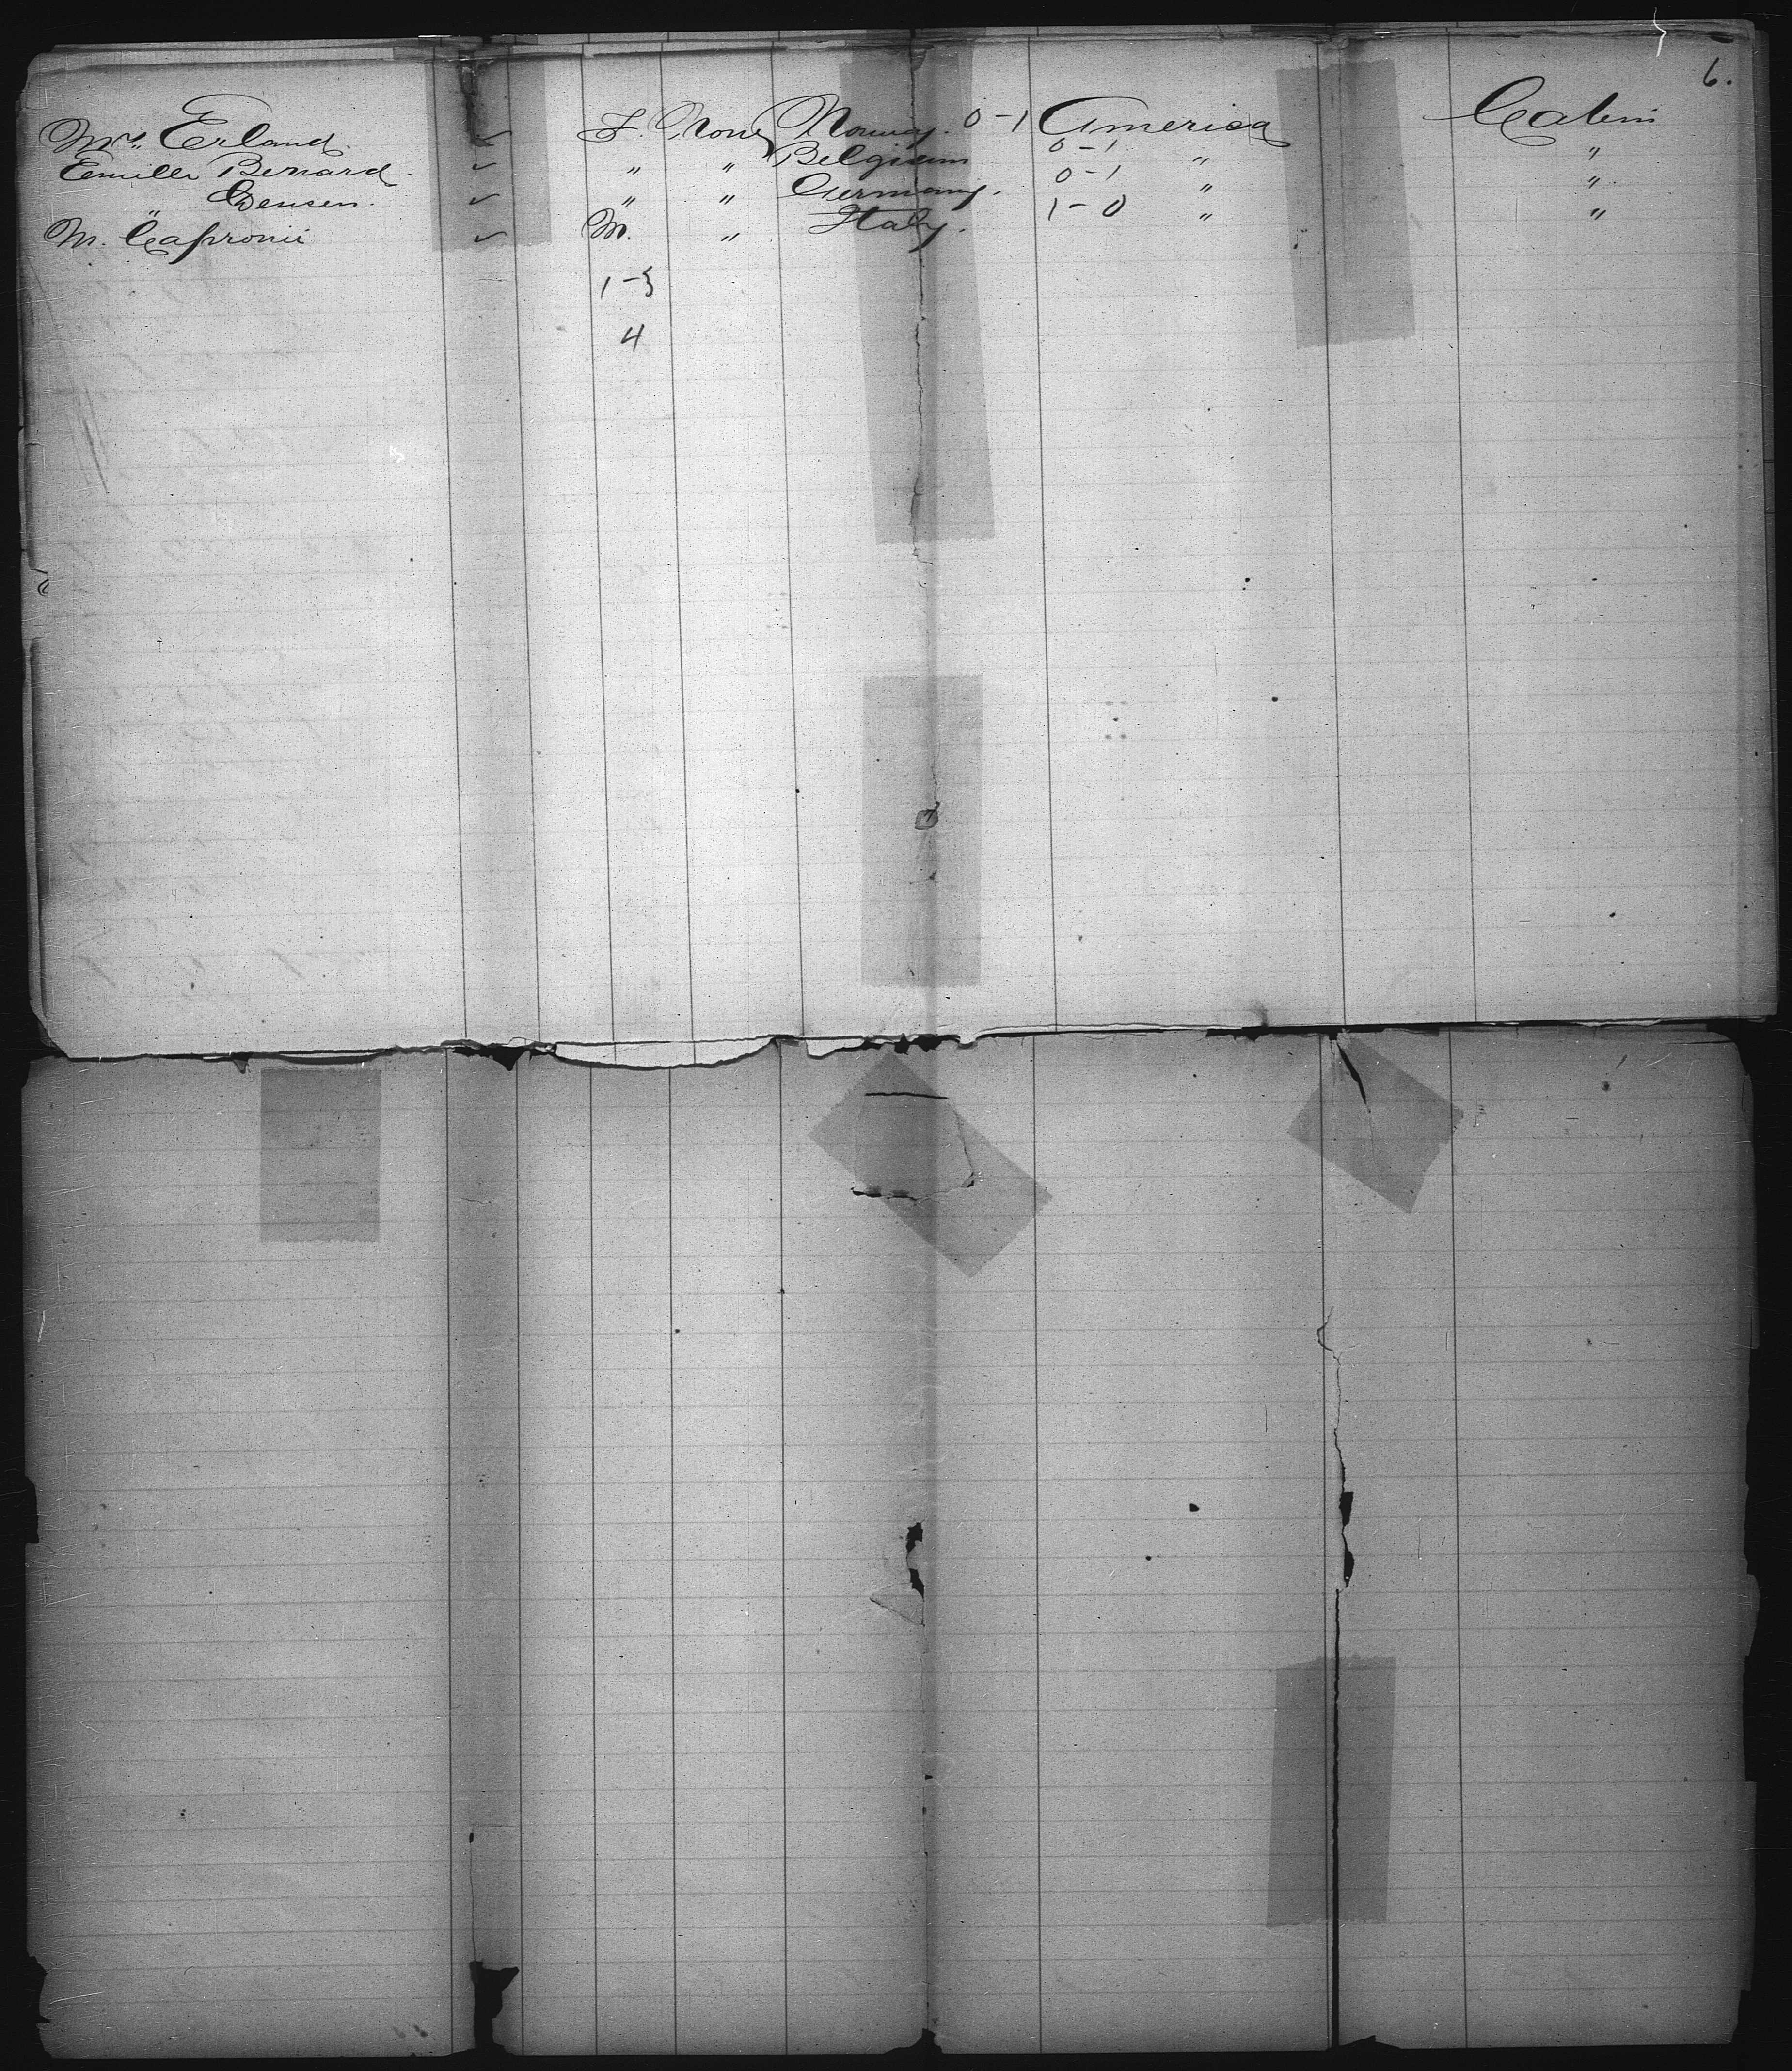 6.
Mrs. Erland. ✓ F. None Norway. 0-1 America Cabin
Emille Bernard. ✓ " " Belgium 0-1 " "
" Densen. ✓ " " Germany. 0-1 " "
M. Capronii ✓ M. " Italy. 1-0 " "
1-3
4